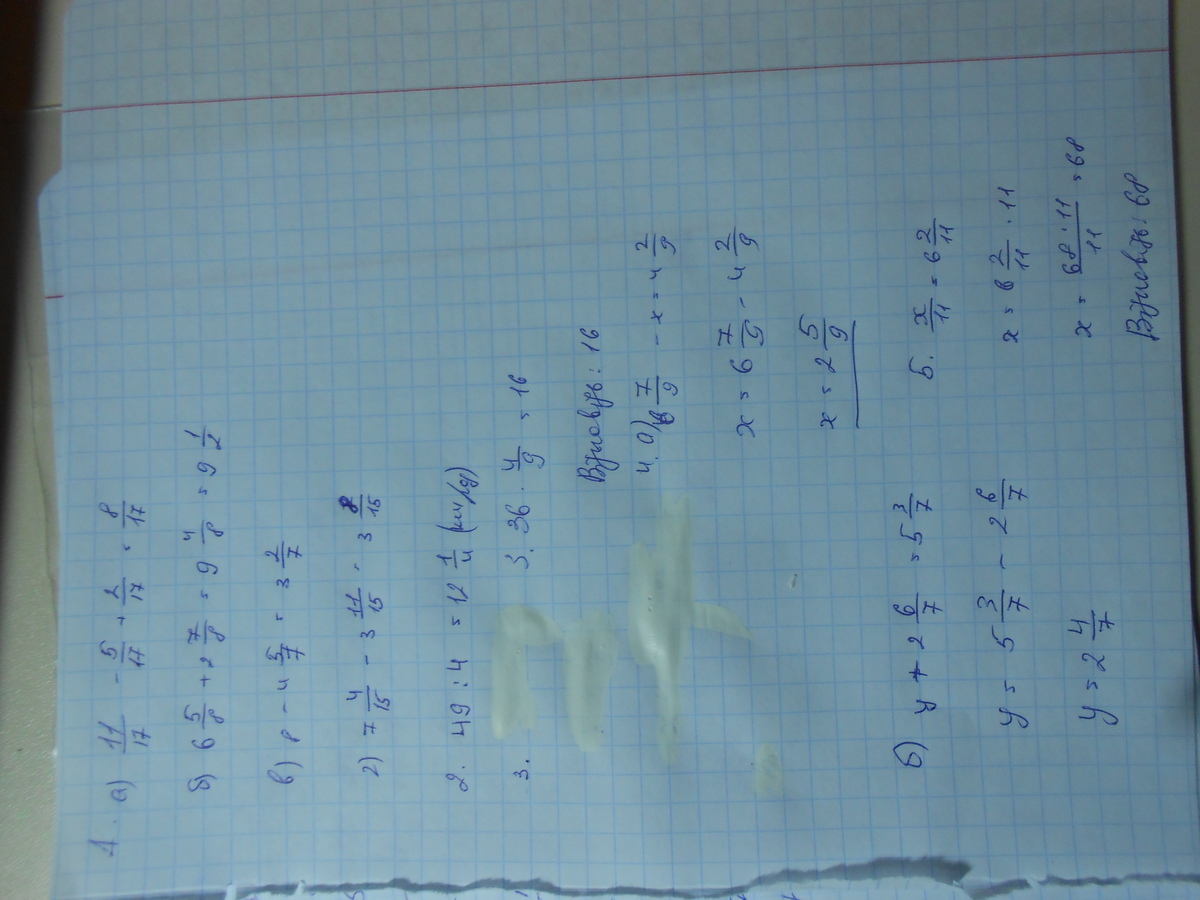 1. а) 11/17 - 5/17 + 2/17 = 8/17
б) 6 5/8 + 2 7/8 = 9 4/8 = 9 1/2
в) 8 - 4 5/7 = 3 2/7
г) 7 4/15 - 3 11/15 = 3 8/15
2. 49 : 4 = 12 1/4
3. 3. 36 · 4/9 = 16
Відповідь: 16
4. а) 6 7/9 - x = 4 2/9
x = 6 7/9 - 4 2/9
x = 2 5/9
б) y + 2 6/7 = 5 3/7
y = 5 3/7 - 2 6/7
y = 2 4/7
5. x/11 = 6 2/11
x = 6 2/11 · 11
x = 68 · 11/11 = 68
Відповідь: 68